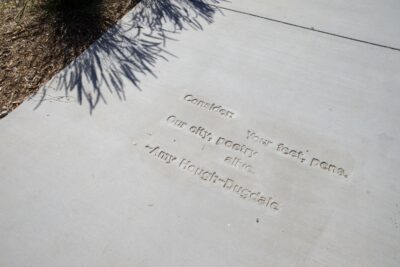 Consider: Your feet, pens.
Our city, poetry
alive.
-Amy Hough-Dugdale